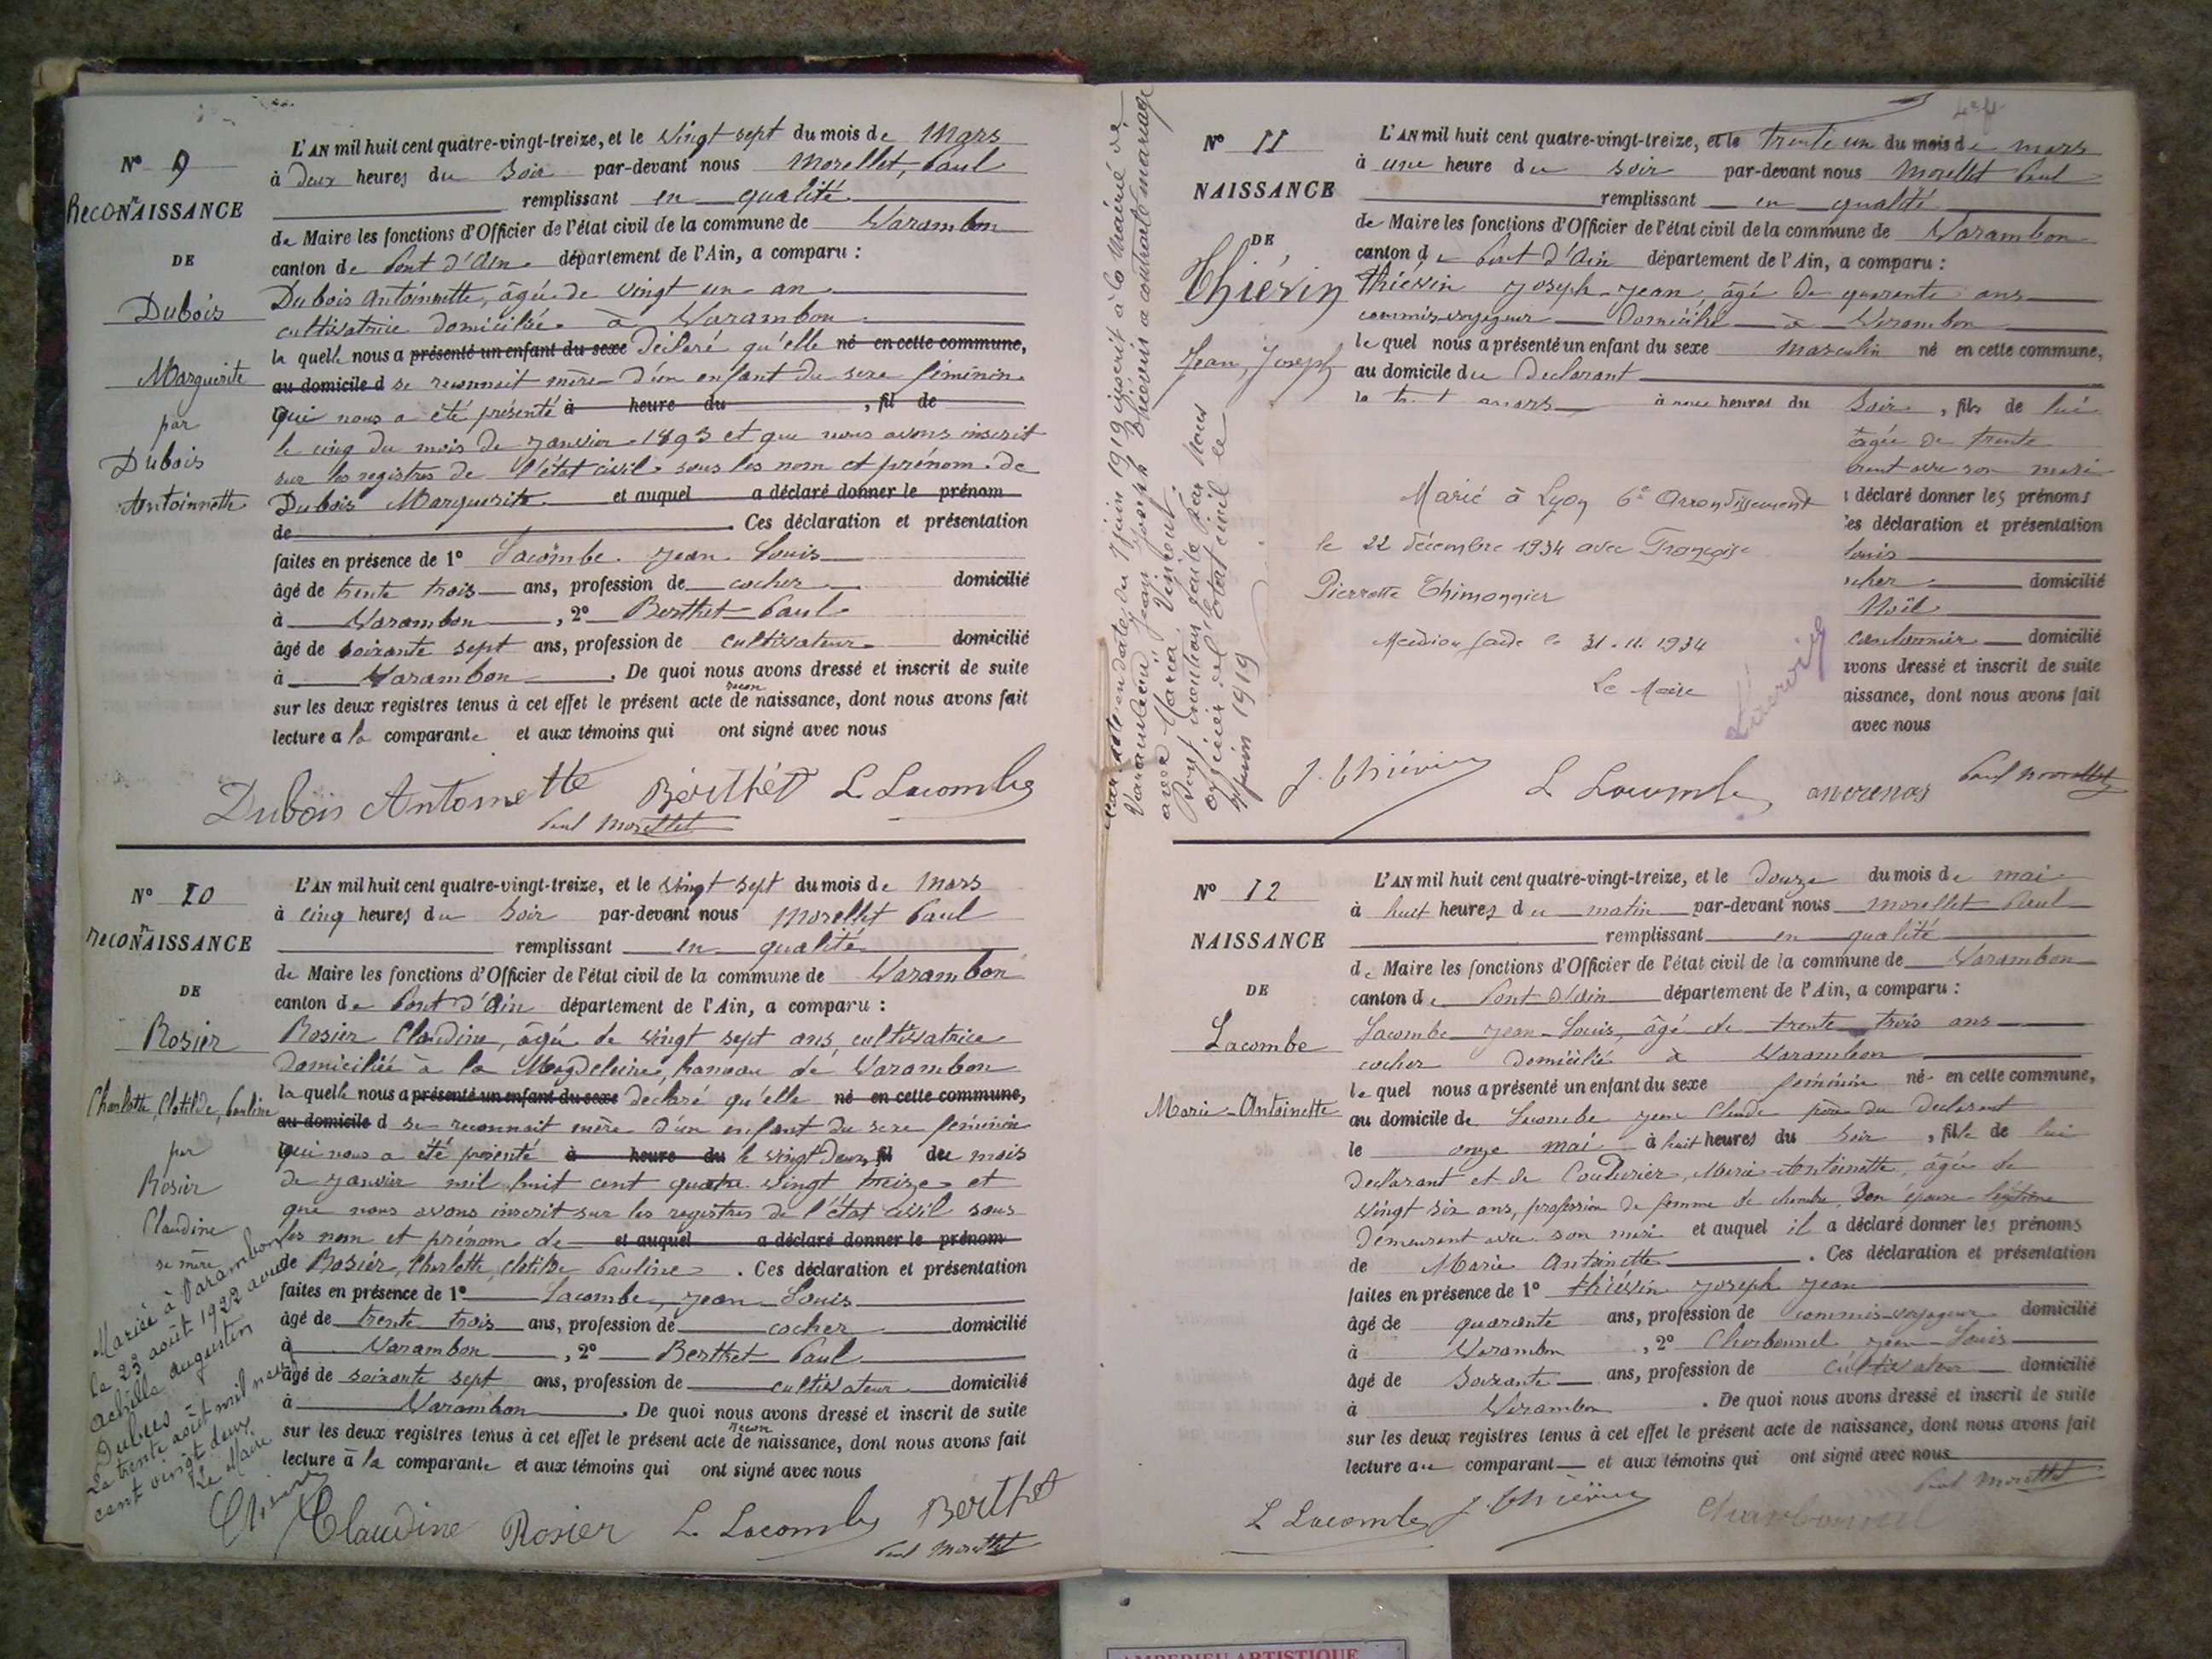 N° 9
ReconNAISSANCE
DE
Dubois
Marguerite
par
Dubois
Antoinnette
L'AN mil huit cent quatre-vingt-treize, et le vingt sept du mois de Mars
à deux heures du soir par-devant nous Morellet, Paul
remplissant en qualité
de Maire les fonctions d'Officier de l'état civil de la commune de Varambon
canton de Pont d'Ain département de l'Ain, a comparu :
Dubois Antoinnette, âgée de vingt un an
cultivatrice domiciliée à Varambon
la quelle nous a présenté un enfant du sexe déclaré qu'elle né en cette commune,
au domicile d se reconnait mère d'un enfant du sexe féminin
qui nous a été présenté à heure du , fil de
le cinq du mois de janvier 1893 et que nous avons inscrit
sur les registres de l'état civil sous les nom et prénom de
Dubois Marguerite et auquel a déclaré donner le prénom
de . Ces déclaration et présentation
faites en présence de 1° Lacombe Jean Louis
âgé de trente trois ans, profession de cocher domicilié
à Varambon , 2° Berthet Paul
âgé de soixante sept ans, profession de cultivateur domicilié
à Varambon . De quoi nous avons dressé et inscrit de suite
sur les deux registres tenus à cet effet le présent acte de reconnaissance, dont nous avons fait
lecture a la comparante et aux témoins qui ont signé avec nous
Dubois Antoinette Berthet L Lacombe
Paul Morellet
N° 10
reconNAISSANCE
DE
Rosier
Charlotte, Clotilde, Pauline
par
Rosier
Claudine
sa mère
Mariée à Varambon
le 23 août 1922 avec
Achille Augustin
Dubus
Le trente août mil neuf
cent vingt deux
Le Maire
L'AN mil huit cent quatre-vingt-treize, et le vingt sept du mois de Mars
à cinq heures du soir par-devant nous Morellet Paul
remplissant en qualité
de Maire les fonctions d'Officier de l'état civil de la commune de Varambon
canton de Pont d'Ain département de l'Ain, a comparu :
Rosier Claudine, âgée de vingt sept ans, cultivatrice
domiciliée à la Magdeleine, hameau de Varambon
la quelle nous a présenté un enfant du sexe declaré qu'elle né en cette commune,
au domicile d se reconnait mère d'un enfant du sexe féminin
qui nous a été présenté à heure du le vingt deux fil du mois
de janvier mil huit cent quatre vingt treize et
que nous avons inscrit sur les registres de l'état civil sous
les nom et prénom de et auquel a déclaré donner le prénom
de Rosier, Charlotte, Clotilde Pauline . Ces déclaration et présentation
faites en présence de 1° Lacombe, Jean Louis
âgé de trente trois ans, profession de cocher domicilié
à Varambon , 2° Berthet Paul
âgé de soixante sept ans, profession de cultivateur domicilié
à Varambon . De quoi nous avons dressé et inscrit de suite
sur les deux registres tenus à cet effet le présent acte de reconnaissance, dont nous avons fait
lecture à la comparante et aux témoins qui ont signé avec nous
Claudine Rosier L. Lacombe Berthet
Paul Morellet
N° 11
NAISSANCE
DE
Thiévin
Jean, Joseph
en date du 7 juin 1919 inscrit à la Mairie de
Jean Joseph Thiévin a contracté mariage
avec Maria Vincent.
Dont mention faite par Nous
officier de l'état civil le
juin 1919
L'AN mil huit cent quatre-vingt-treize, et le trente un du mois de mars
à une heure du soir par-devant nous Morellet Paul
remplissant en qualité
de Maire les fonctions d'Officier de l'état civil de la commune de Varambon
canton de Pont d'Ain département de l'Ain, a comparu :
Thiévin Joseph Jean, âgé de quarante ans
commis-voyageur domicilié à Varambon
le quel nous a présenté un enfant du sexe masculin né en cette commune,
au domicile du déclarant
mars heures du soir, fils de lui
âgée de trente
avec son mari
déclaré donner les prénoms
déclaration et présentation
Louis
domicilié
Noël
cantonnier domicilié
avons dressé et inscrit de suite
naissance, dont nous avons fait
avec nous
Marié à Lyon 6e Arrondissement
le 22 décembre 1934 avec Françoise
Pierrette Thimonnier
Mention faite le 31.11.1934
Le Maire
J. Thiévin L Lacombe Paul Morellet
N° 12
NAISSANCE
DE
Lacombe
Marie-Antoinette
L'AN mil huit cent quatre-vingt-treize, et le douze du mois de mai
à huit heures du matin par-devant nous Morellet Paul
remplissant en qualité
de Maire les fonctions d'Officier de l'état civil de la commune de Varambon
canton de Pont d'Ain département de l'Ain, a comparu :
Lacombe Jean-Louis, âgé de trente trois ans
cocher domicilié à Varambon
le quel nous a présenté un enfant du sexe féminin né en cette commune,
au domicile de Lacombe Jean Claude père du déclarant
le onze mai à huit heures du soir, fille de lui
déclarant et de Couturier, Marie Antoinette, âgée de
vingt six ans, profession de femme de chambre, son épouse légitime
demeurant avec son mari et auquel il a déclaré donner les prénoms
de Marie Antoinette . Ces déclaration et présentation
faites en présence de 1° Thiévin Joseph Jean
âgé de quarante ans, profession de commis-voyageur domicilié
à Varambon , 2° Charbonnel Jean-Louis
âgé de soixante ans, profession de cultivateur domicilié
à Varambon . De quoi nous avons dressé et inscrit de suite
sur les deux registres tenus à cet effet le présent acte de naissance, dont nous avons fait
lecture au comparant et aux témoins qui ont signé avec nous
L Lacombe J. Thiévin Charbonnel Paul Morellet
AMBERIEU ARTISTIQUE